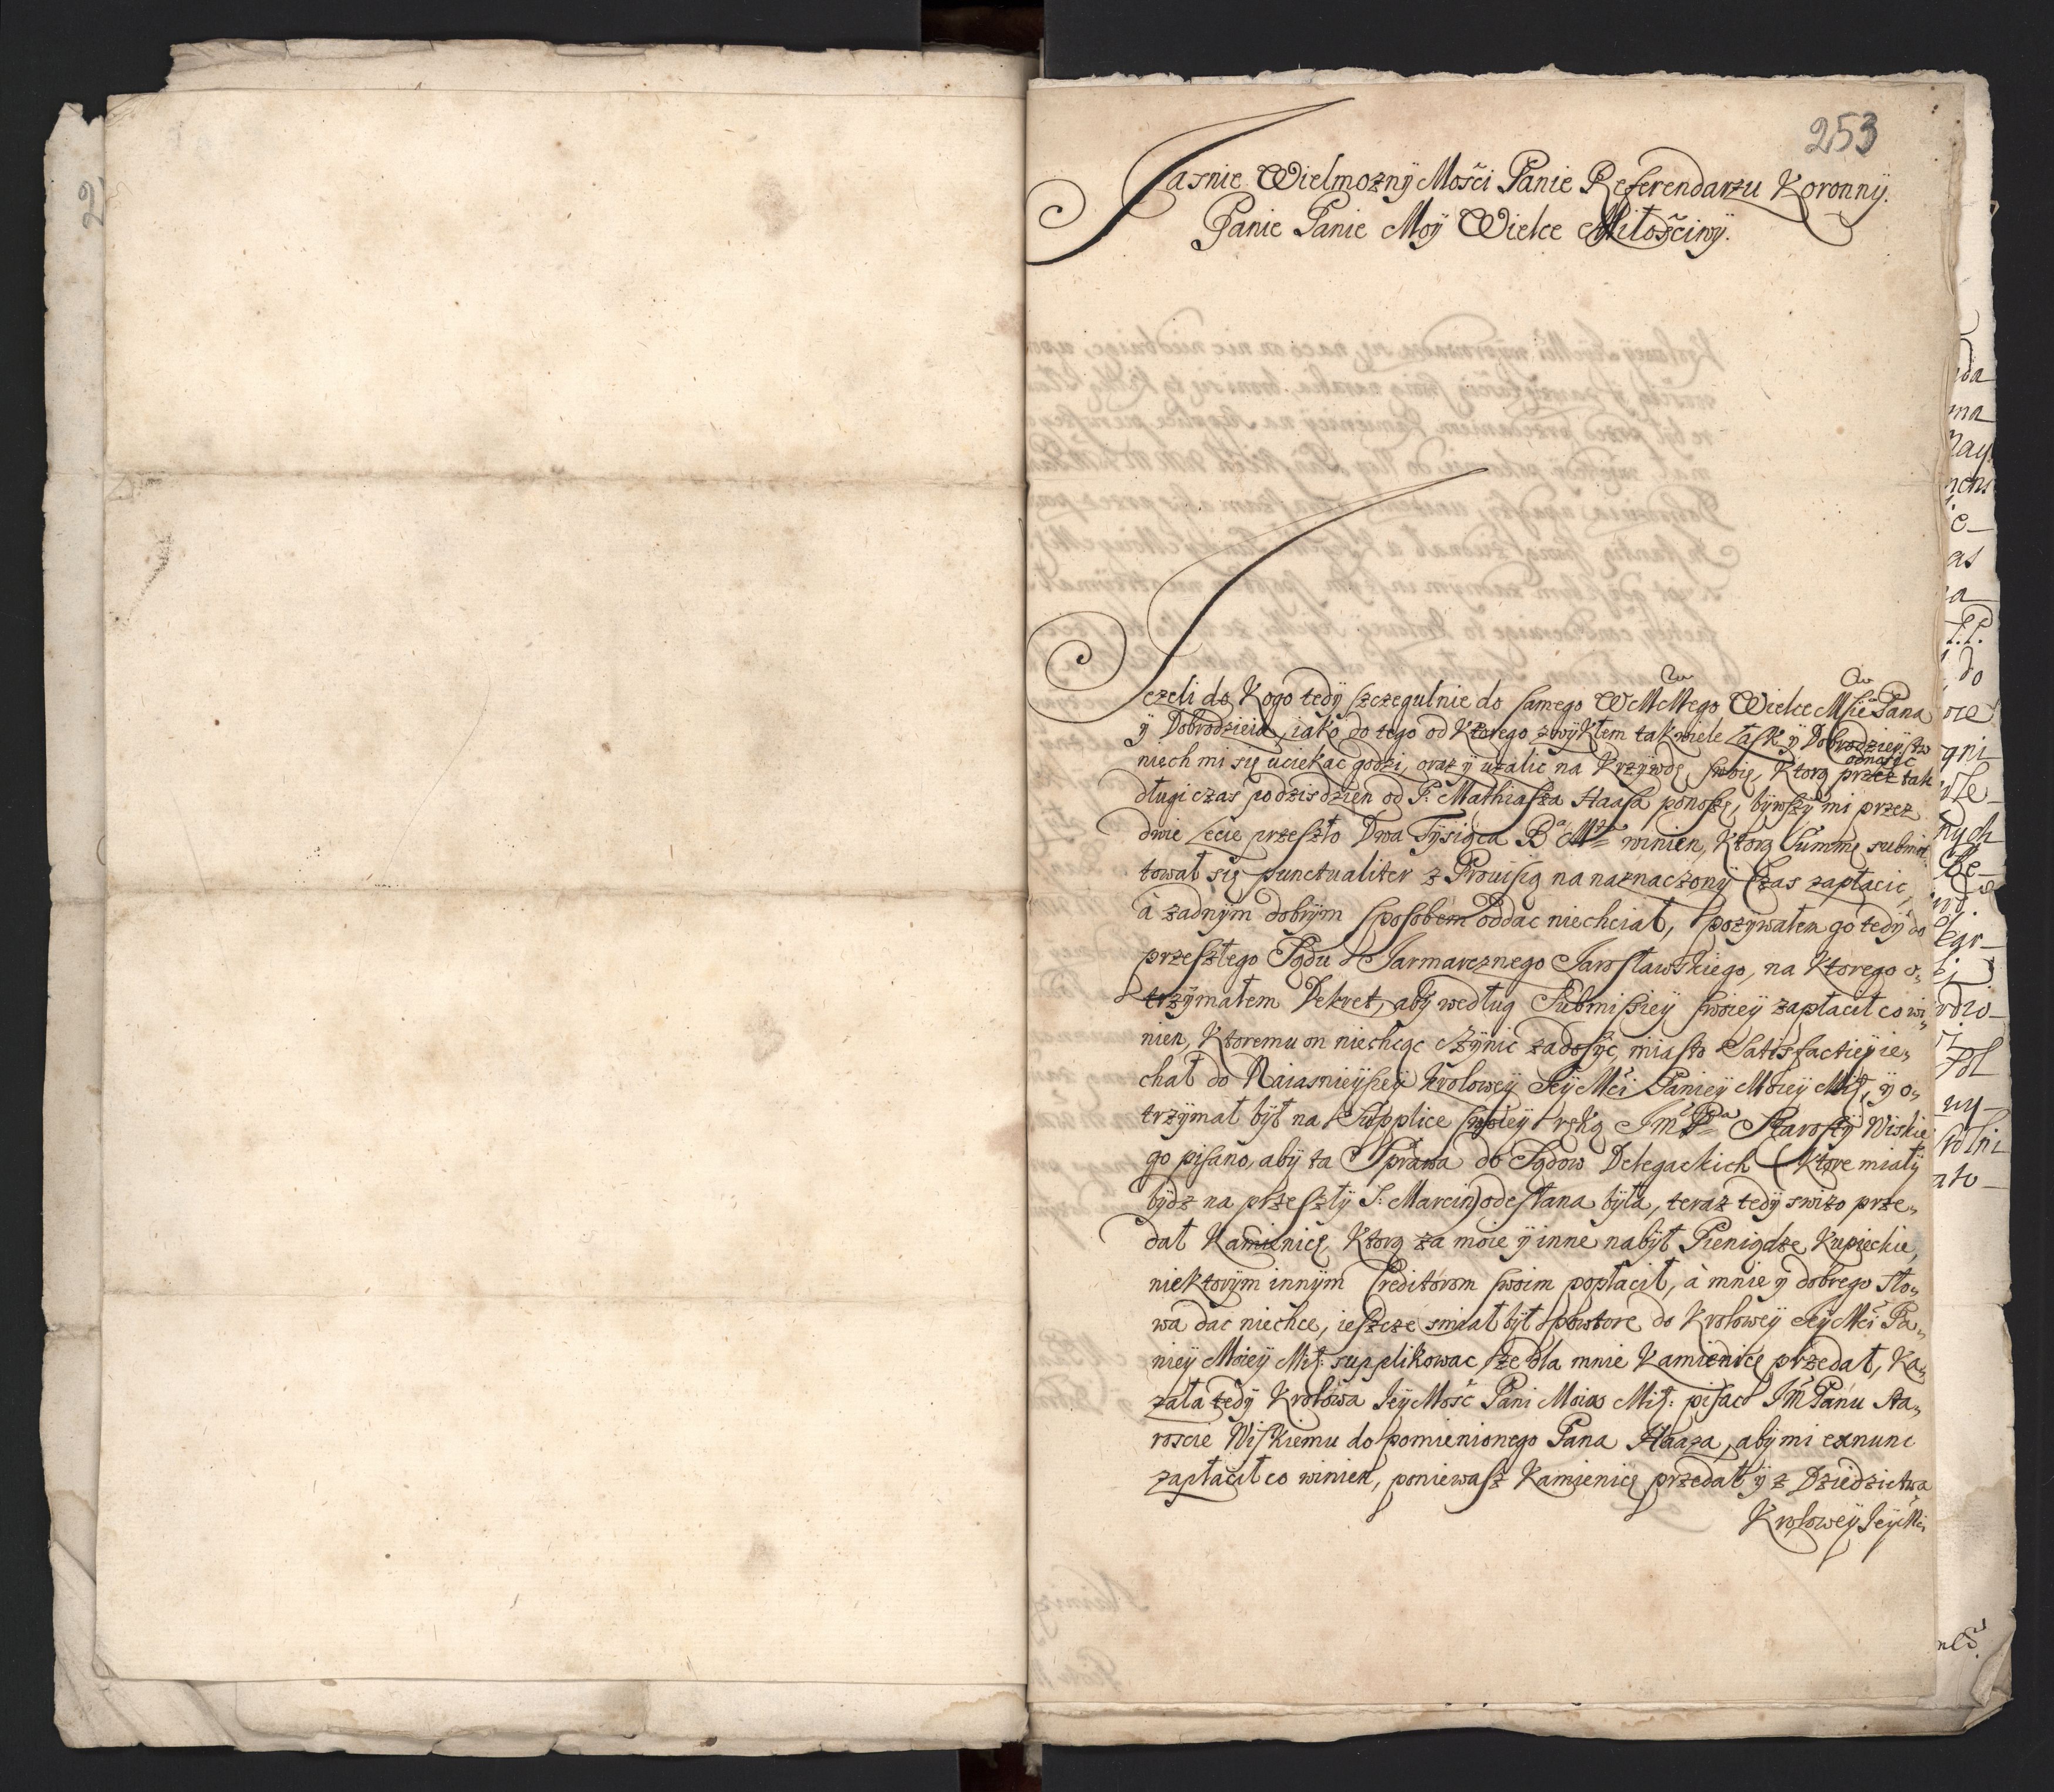 253
Jasnie Wielmozny Mości Panie Referendarzu Koronny.
Panie Panie Moÿ Wielce Miłościwÿ.
Jezeli do Kogo tedÿ szczegulnie do samego WMMego Wielce Msie Pana
ÿ Dobrodzieia, iako do tego od Ktorego zwÿkłem tak wiele łask ÿ Dobrodzieÿstw
odnosic
niech mi się uciekac godzi, oraz ÿ uzalic na Krzÿwdę swoię, Ktorą przez tak
długi czas podzisdzien od P. Mathiasza Haasa ponoszę, bÿwszÿ mi przez
dwie Lecie przeszło Dwa Tÿsiąca winien, Ktorą Summę submit,
tował się punctualiter z Prouisią na naznaczony Czas zapłacic,
à zadnÿm dobrÿm sposobem oddac niechciał, pozÿwałem go tedÿ do
przeszłego Sądu Jarmarcznego Jarosławskiego, na Ktorego o,
trzÿmałem Dekret, abÿ według Submissieÿ swoieÿ zapłacił co wi,
nien, Ktoremu on niechcąc czÿnic zadosÿc, miasto Satisfactieÿ ie,
chał do Naiasnieÿszeÿ Kroloweÿ Jeÿ Mci Panieÿ Moieÿ Mił, ÿ o,
trzÿmał bÿł na Supplice swoieÿ ręką Jm Pa Starostÿ Wiskie
go pisano, abÿ ta Sprawa do Sądow Delegackich (Ktore miałÿ
bÿdz na przeszłÿ S: Marcin) odesłana bÿła, teraz tedÿ swizo prze,
dał Kamienicę, Ktorą za moie ÿ inne nabÿł Pieniądze Kupieckie,
niektorÿm innÿm Creditorom swoim popłacił, à mnie ÿ dobrego Sło,
wa dac niechce, ieszcze smiał bÿł powtore do Krolowey Jeÿ Mci Pa,
nieÿ Moieÿ Mił: supplikowac ze dla mnie Kamienicę przedał, Ka,
zała tedÿ Krolowa Jeÿ Mość Pani Moia Mił: pisac Jm Panu Sta,
roscie Wiskiemu do pomienionego Pana Haaza, abÿ mi exnunc
zapłacił co winien, poniewasz Kamienicę przedał ÿ z Dziedzictwa
Krolowey Jeÿ Mci